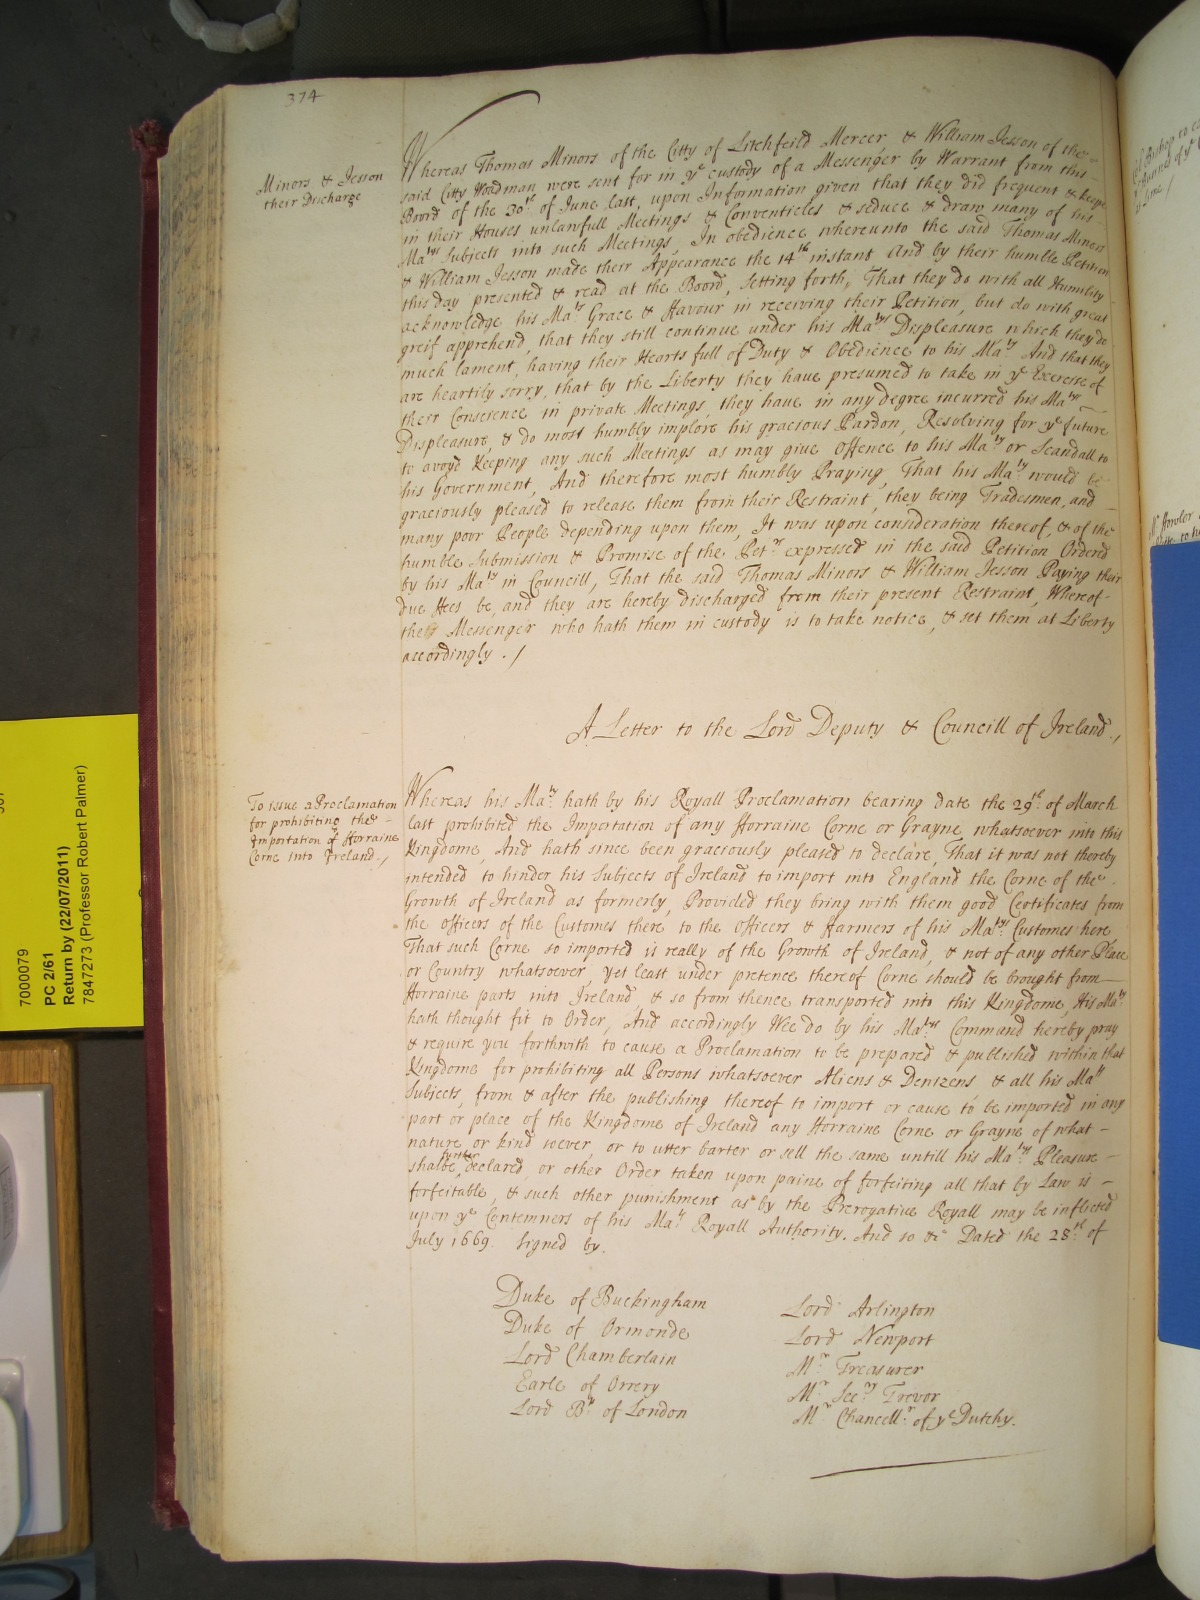 374
Minors & Jesson
their Discharge
Whereas Thomas Minors of the Citty of Litchfeild Mercer & William Jesson of the
said Citty Woadman were sent for in yᵉ custody of a Messenger by Warrant from this
Board of the 30ᵗʰ of June last, upon Information given that they did frequent & keepe
in their Houses unlawfull Meetings & Conventicles & seduce & draw many of his
Maᵗʸˢ Subjects into such Meetings, In obedience whereunto the said Thomas Minors
& William Jesson made their Appearance the 14ᵗʰ instant And by their humble Petition
this day presented & read at the Board, setting forth, That they do with all Humility
acknowledge his Maᵗʸˢ Grace & ffavour in receiving their Petition, but do with great
greif apprehend, that they still continue under his Maᵗʸˢ Displeasure which they do
much lament, having their Hearts full of Duty & Obedience to his Maᵗʸ And that they
are heartily sorry, that by the Liberty they have presumed to take in yᵉ Exercise of
their Conscience in private Meetings, they have in any degree incurred his Maᵗʸˢ
Displeasure, & do most humbly implore his gracious Pardon, Resolving for yᵉ future
to avoyd Keeping any such Meetings as may give Offence to his Maᵗʸ or Scandall to
his Government, And therefore most humbly Praying, That his Maᵗʸ would be
graciously pleased to release them from their Restraint, they being Tradesmen, and
many poor People depending upon them, It was upon consideration thereof, & of the
humble Submission & Promise of the Petʳˢ expressed in the said Petition Ordered
by his Maᵗʸ in Councill, That the said Thomas Minors & William Jesson Paying their
due ffees be, and they are hereby discharged from their present Restraint, Whereof
the Messenger who hath them in custody is to take notice, & set them at Liberty
accordingly ./
A Letter to the Lord Deputy & Councill of Ireland./
To issue a Proclamation
for prohibiting the
Importation of fforraine
Corne into Ireland./
Whereas his Maᵗʸ hath by his Royall Proclamation bearing date the 29ᵗʰ of March
last prohibited the Importation of any fforraine Corne or Grayne whatsoever into this
Kingdome, And hath since been graciously pleased to declare, That it was not thereby
intended to hinder his Subjects of Ireland to import into England the Corne of the
Growth of Ireland as formerly, Provided they bring with them good Certificates from
the officers of the Customes there to the officers & ffarmers of his Maᵗʸˢ Customes here
That such Corne so imported is really of the Growth of Ireland, & not of any other Place
or Country whatsoever, yet least under pretence thereof Corne should be brought from
fforraine parts into Ireland, & so from thence transported into this Kingdome, His Maᵗʸ
hath thought fit to Order, And accordingly Wee do by his Maᵗʸˢ Command hereby pray
& require you forthwith to cause a Proclamation to be prepared & published within that
Kingdome for prohibiting all Persons whatsoever Aliens & Denizens & all his Maᵗˢ
Subjects, from & after the publishing thereof to import or cause to be imported in any
part or place of the Kingdome of Ireland any fforraine Corne or Grayne of what
nature or kind soever, or to utter barter or sell the same untill his Maᵗʸˢ Pleasure
shalbe further declared, or other Order taken upon paine of forfeiting all that by Law is
forfeitable, & such other punishment as by the Prerogative Royall may be inflicted
upon yᵉ Contemners of his Maᵗˢ Royall Authority. And so &c Dated the 28ᵗʰ of
July 1669. Signed by.
Duke of Buckingham
Duke of Ormonde
Lord Chamberlain
Earle of Orrery
Lord Bᵖ of London
Lord Arlington
Lord Newport
Mʳ Treasurer
Mʳ Secʳʸ Trevor
Mʳ Chancellʳ of yᵉ Dutchy.
7000079
PC 2/61
Return by (22/07/2011)
7847273 (Professor Robert Palmer)